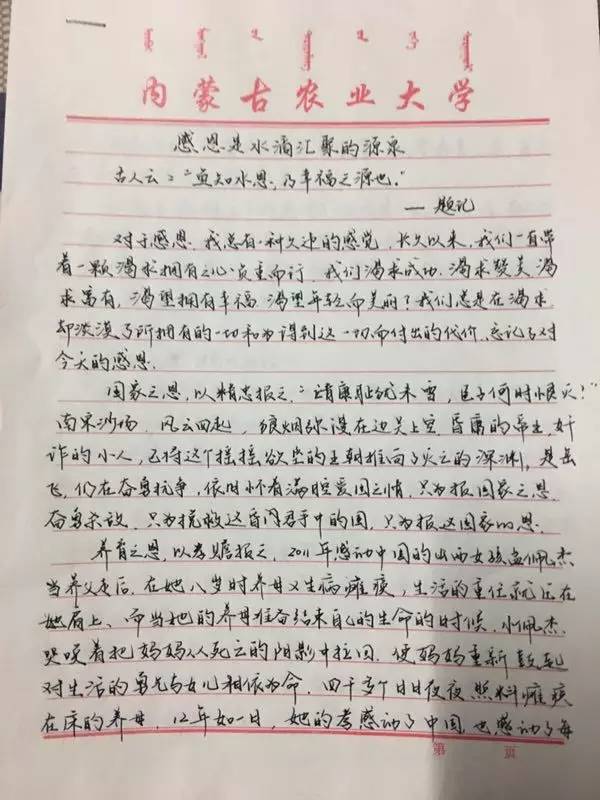 内蒙古农业大学
感恩是水滴汇聚的源泉
古人云："鱼知水恩，乃幸福之源也。"
——题记
对于感恩，我总有一种久违的感觉，长久以来，我们一直带
着一颗渴求拥有之心负重而行，我们渴求成功，渴求赞美，渴
求富有，渴望拥有幸福，渴望年轻而美丽？我们总是在渴求，
却淡漠了所拥有的一切和为得到这一切而付出的代价，忘记了对
今天的感恩。
国家之恩，以精忠报之，"靖康耻犹未雪，臣子何时恨灭！"
南宋沙场，风云四起，狼烟弥漫在边关上空，昏庸的帝王，奸
诈的小人，已将这个摇摇欲坠的王朝推向了灭亡的深渊，是岳
飞，仍在奋勇抗争，依旧怀着满腔爱国之情，只为报国家之恩，
奋勇杀敌，只为挽救这昏君手中的国，只为报这国家的恩。
养育之恩，以孝赡报之，2011年感动中国的山西女孩孟佩杰，
当养父走后，在她八岁时养母又生病瘫痪，生活的重任就压在
她肩上、而当她的养母准备结束自己的生命的时候，小佩杰
哭喊着把妈妈从死亡的阴影中拉回，使妈妈重新鼓起
对生活的勇气与女儿相依为命，四千多个日日夜夜照料瘫痪
在床的养母，12年如一日，她的孝感动了中国，也感动了每
第 页